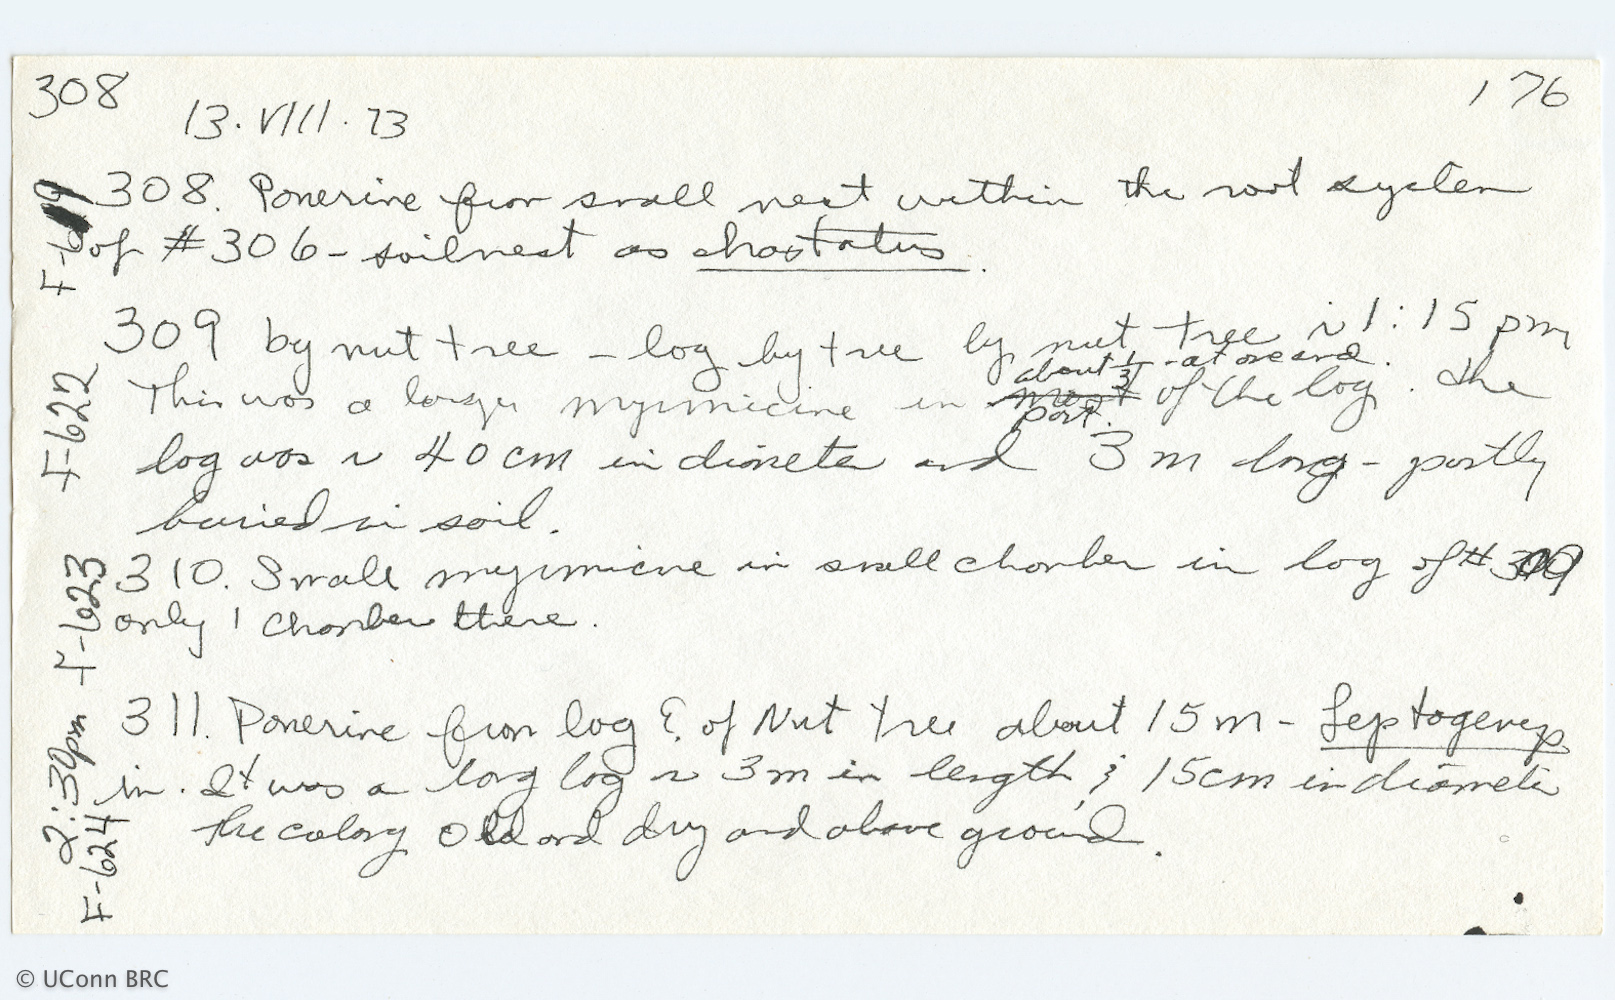 308
176
13.VIII.73
308. Ponerine from small nest within the root system
of #306 - soil nest as hastatus.
309 by nut tree - log by tree by nut tree ~ 1:15 pm
about 1/3 - at one end.
This was a large myrmicine in most of the log. The
part.
log was ~ 40 cm in diameter and 3 m long - partly
buried in soil.
310. Small myrmicine in small chamber in log of #309
only 1 chamber there.
311. Ponerine from log E. of Nut tree about 15 m - Leptogenys
in. It was a long log ~ 3m in length & 15cm in diameter
the colony old and dry and above ground.
F-622
F-623
2:30pm
F-624
© UConn BRC